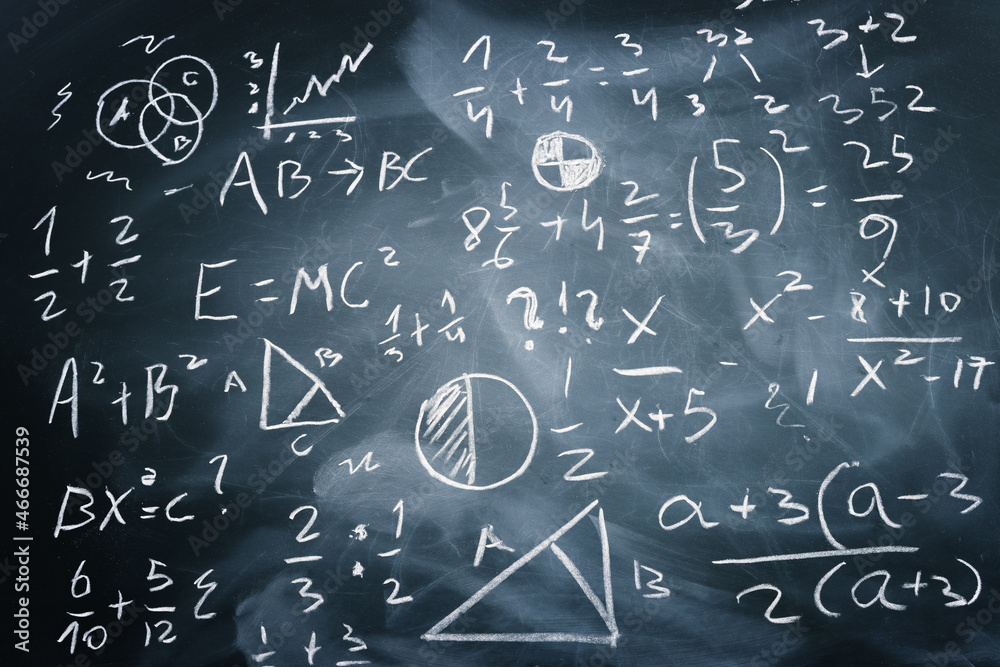 A C B
3 2 1 2 3
1/4 + 2/4 = 3/4
32
3 2
3+2
352
AB → BC
8 5/6 + 4 2/7 = (5/3)² = 25/9
1/2 + 2/2
E = MC²
1/3 + 1/4
?!?
x/x+5 - 1
x² = x 8+10/x²-17
A² + B²
A B C
1/2
BX² = C ?
2/3 : 1/2
A B
a+3(a-3/2(a+3)
6/10 + 5/12
1 + 3
Adobe Stock | #466687539